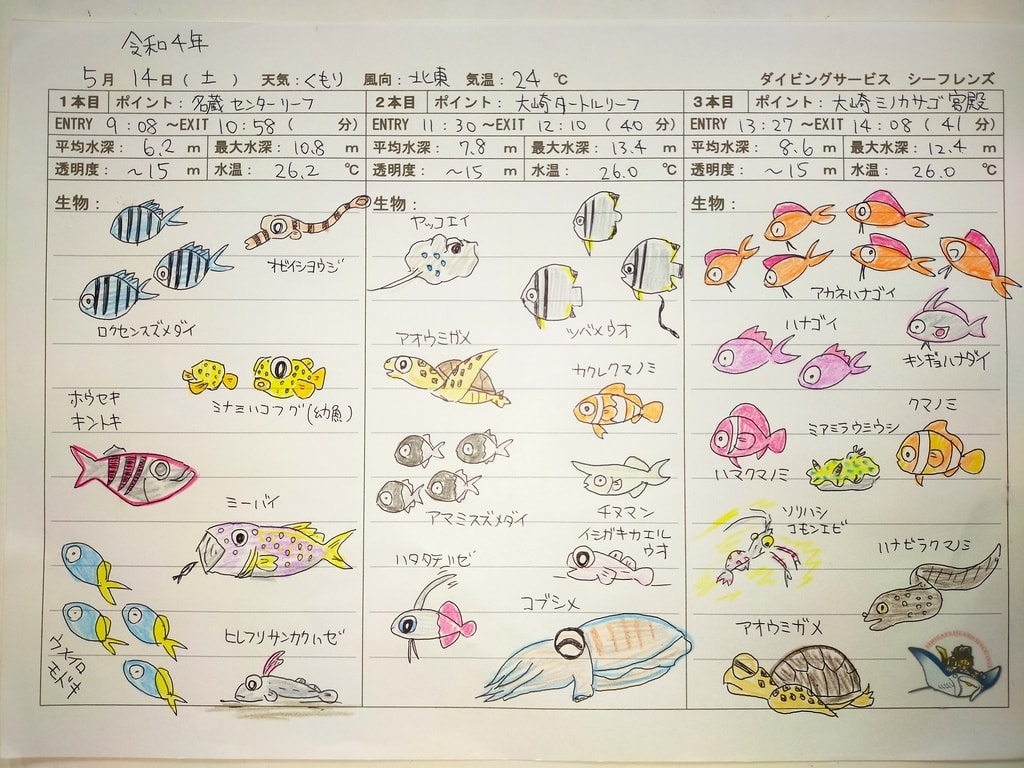 令和4年
5月 14日( 土 ) 天気:くもり 風向:北東 気温:24 ℃ ダイビングサービス シーフレンズ
1本目 ポイント:名蔵センターリーフ
ENTRY 9:08 ~EXIT 10:58 ( 分)
平均水深: 6.2 m 最大水深: 10.8 m
透明度: ~15 m 水温: 26.2 ℃
生物:
オビイシヨウジ
ロクセンスズメダイ
ミナミハコフグ(幼魚)
ホウセキ
キントキ
ミーバイ
ウメイロ
モドキ
ヒレフリサンカクハゼ
2本目 ポイント: 大崎タートルリーフ
ENTRY 11:30 ~EXIT 12:10 ( 40 分)
平均水深: 7.8 m 最大水深: 13.4 m
透明度: ~15 m 水温: 26.0 ℃
生物:
ヤッコエイ
ツバメウオ
アオウミガメ
カクレクマノミ
アマミスズメダイ
チヌマン
イシガキカエル
ウオ
ハタタテハゼ
コブシメ
3本目 ポイント: 大崎ミノカサゴ宮殿
ENTRY 13:27 ~EXIT 14:08 ( 41 分)
平均水深: 8.6 m 最大水深: 12.4 m
透明度: ~15 m 水温: 26.0 ℃
生物:
アカネハナゴイ
ハナゴイ
キンギョハナダイ
クマノミ
ハマクマノミ
ミアミラウミウシ
ソリハシ
コモンエビ
ハナビラクマノミ
アオウミガメ